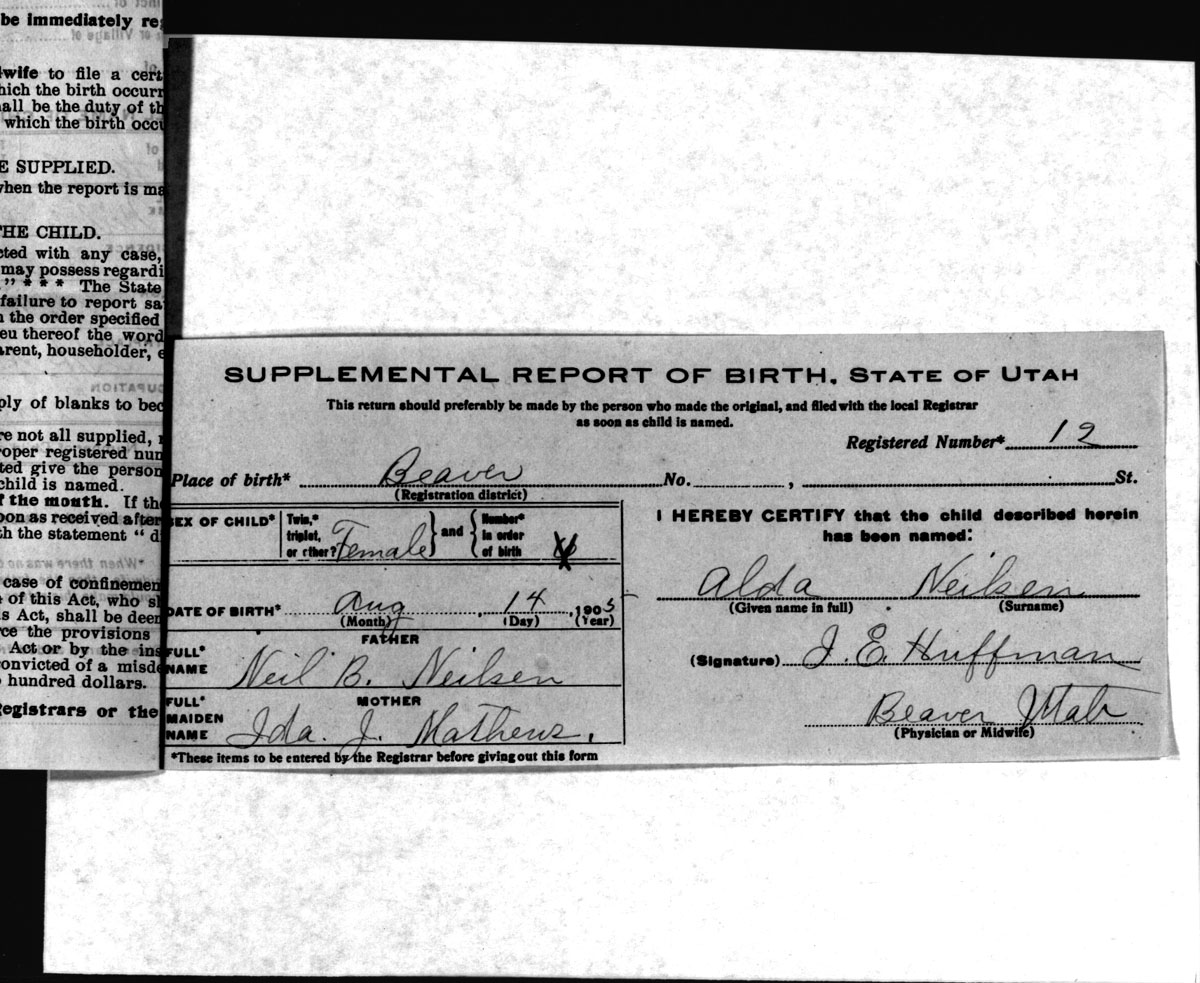 be immediately re
wife to file a cert
hich the birth occurr
all be the duty of th
which the birth occu
E SUPPLIED.
when the report is ma
THE CHILD.
cted with any case,
may possess regardi
." * * * The State
failure to report sa
n the order specified
eu thereof the word
arent, householder, e
ply of blanks to bec
re not all supplied,
roper registered num
ted give the person
child is named.
f the month. If the
oon as received after
th the statement " d
case of confinemen
of this Act, who sh
s Act, shall be deem
rce the provisions
Act or by the ins
convicted of a misde
hundred dollars.
Registrars or the
SUPPLEMENTAL REPORT OF BIRTH, STATE OF UTAH
This return should preferably be made by the person who made the original, and filed with the local Registrar
as soon as child is named.
Registered Number* 12
Place of birth* Beaver No. , St.
(Registration district)
SEX OF CHILD* Twin,* triplet, or other? Female and Number* in order of birth
DATE OF BIRTH* Aug , 14 , 1905
(Month) (Day) (Year)
FATHER
FULL* NAME Neil B. Neilsen
MOTHER
FULL* MAIDEN NAME Ida. J. Mathews.
*These items to be entered by the Registrar before giving out this form
I HEREBY CERTIFY that the child described herein
has been named:
Alda Neilsen
(Given name in full) (Surname)
(Signature) J. E. Huffman
Beaver Utah
(Physician or Midwife)